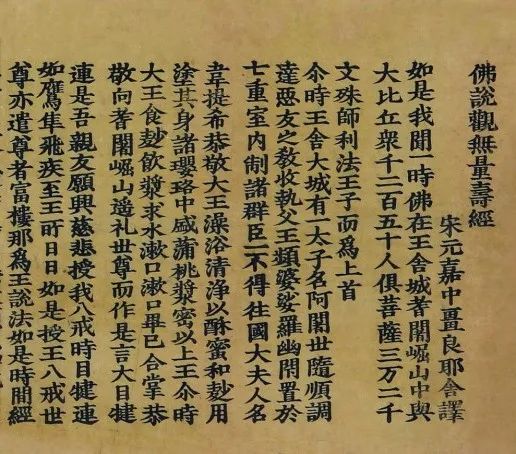 佛說觀無量壽經
宋元嘉中畺良耶舍譯
如是我聞一時佛在王舍城耆闍崛山中與
大比丘衆千二百五十人俱菩薩三万二千
文殊師利法王子而爲上首
尒時王舍大城有一太子名阿闍世隨順調
達惡友之教收執父王頻婆娑羅幽閇置於
七重室内制諸群臣一不得往國大夫人名
韋提希恭敬大王澡浴清净以酥蜜和麨用
塗其身諸瓔珞中盛蒲桃漿密以上王尒時
大王食麨飲漿求水漱口漱口畢已合掌恭
敬向耆闍崛山遥礼世尊而作是言大目犍
連是吾親友願興慈悲授我八戒時目犍連
如鷹隼飛疾至王所日日如是授王八戒世
尊亦遣尊者富樓那爲王說法如是時閒經